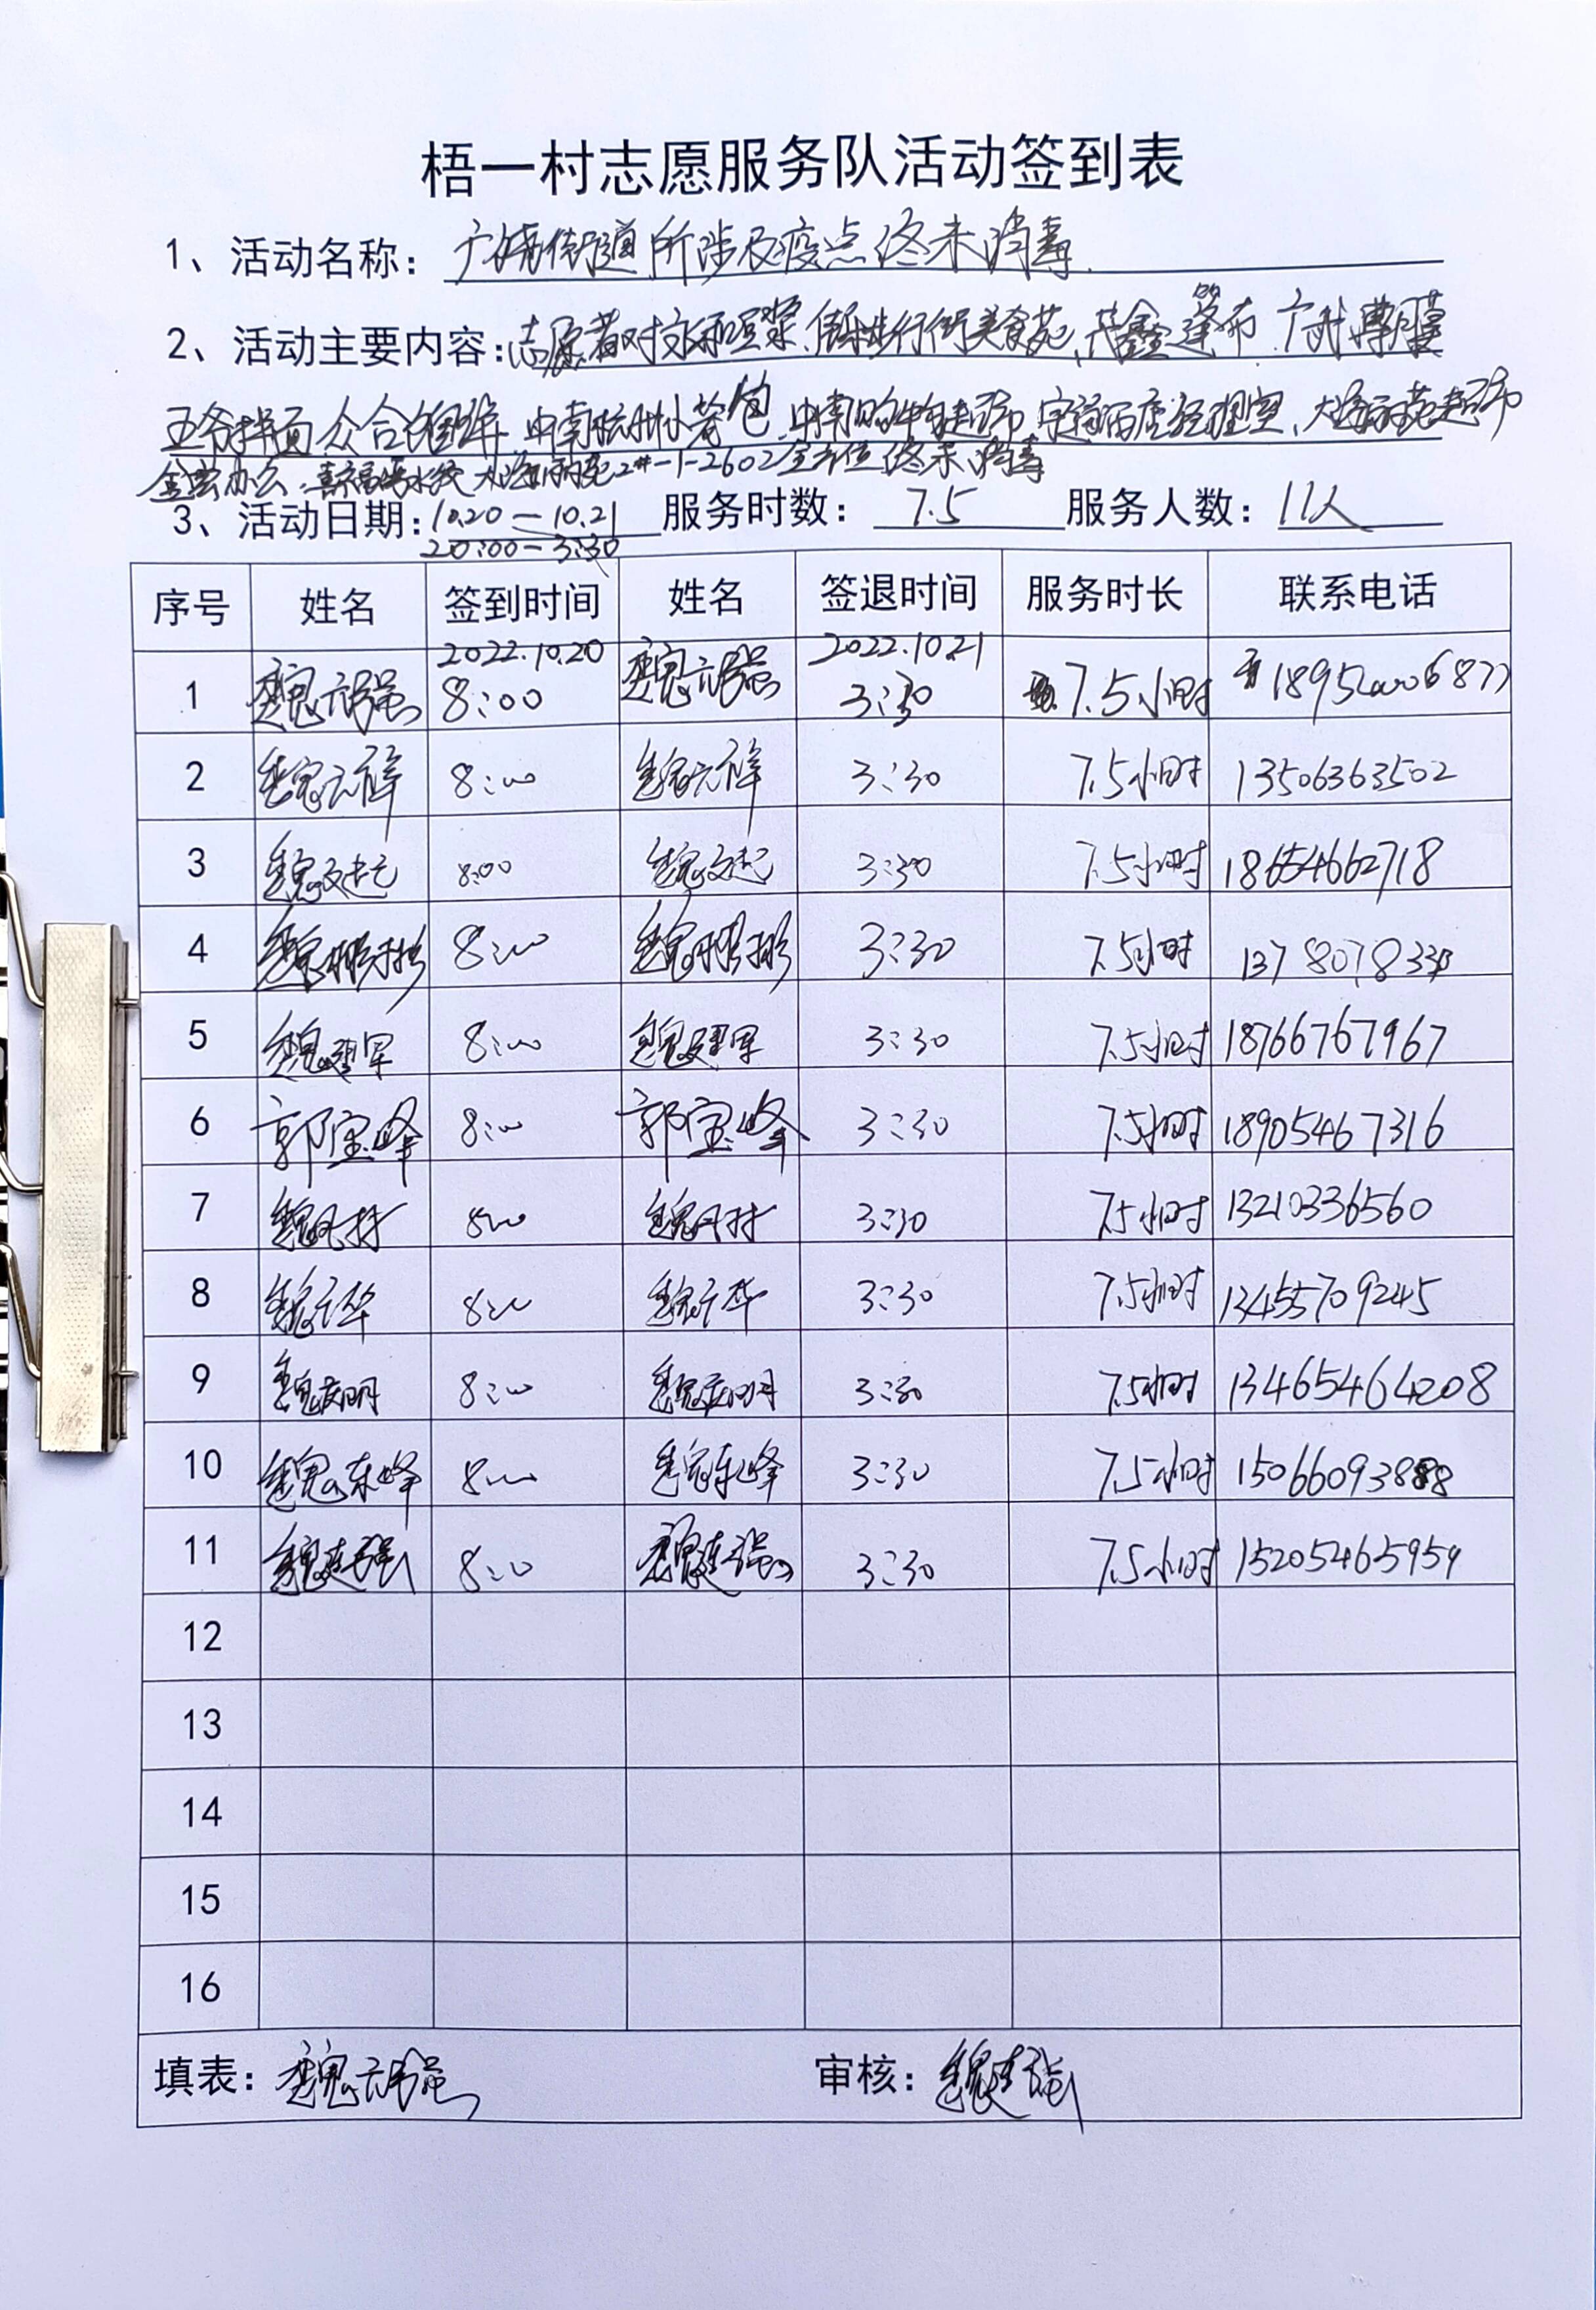 梧一村志愿服务队活动签到表
1、活动名称：广饶街道所涉及疫点终末消毒
2、活动主要内容：志愿者对永和豆浆、乐安步行街美食苑、鑫篷布
王爷拌面 众合 中南杭州小笼包 中南 超市 酒店经理室、超市
金宏办公 2#-1-2602全方位终末消毒
3、活动日期：10.20—10.21 服务时数：7.5 服务人数：11人
20:00-3:30
序号 姓名 签到时间 姓名 签退时间 服务时长 联系电话
2022.10.20 2022.10.21
1 魏元强 8:00 魏元强 3:30 7.5小时
2 魏元祥 8:00 魏元祥 3:30 7.5小时 13506363502
3 魏文起 8:00 魏文起 3:30 7.5小时 18654662718
4 魏 8:00 魏 3:30 7.5小时
5 魏建军 8:00 魏建军 3:30 7.5小时 18766767967
6 郭宝峰 8:00 郭宝峰 3:30 7.5小时 18905467316
7 魏 8:00 魏 3:30 7.5小时 13210336560
8 魏广华 8:00 魏广华 3:30 7.5小时 13455709245
9 魏友明 8:00 魏友明 3:30 7.5小时 13465464208
10 魏东峰 8:00 魏东峰 3:30 7.5小时 15066093888
11 魏建强 8:00 魏建强 3:30 7.5小时 15205465959
12
13
14
15
16
填表：魏元强 审核：魏建强